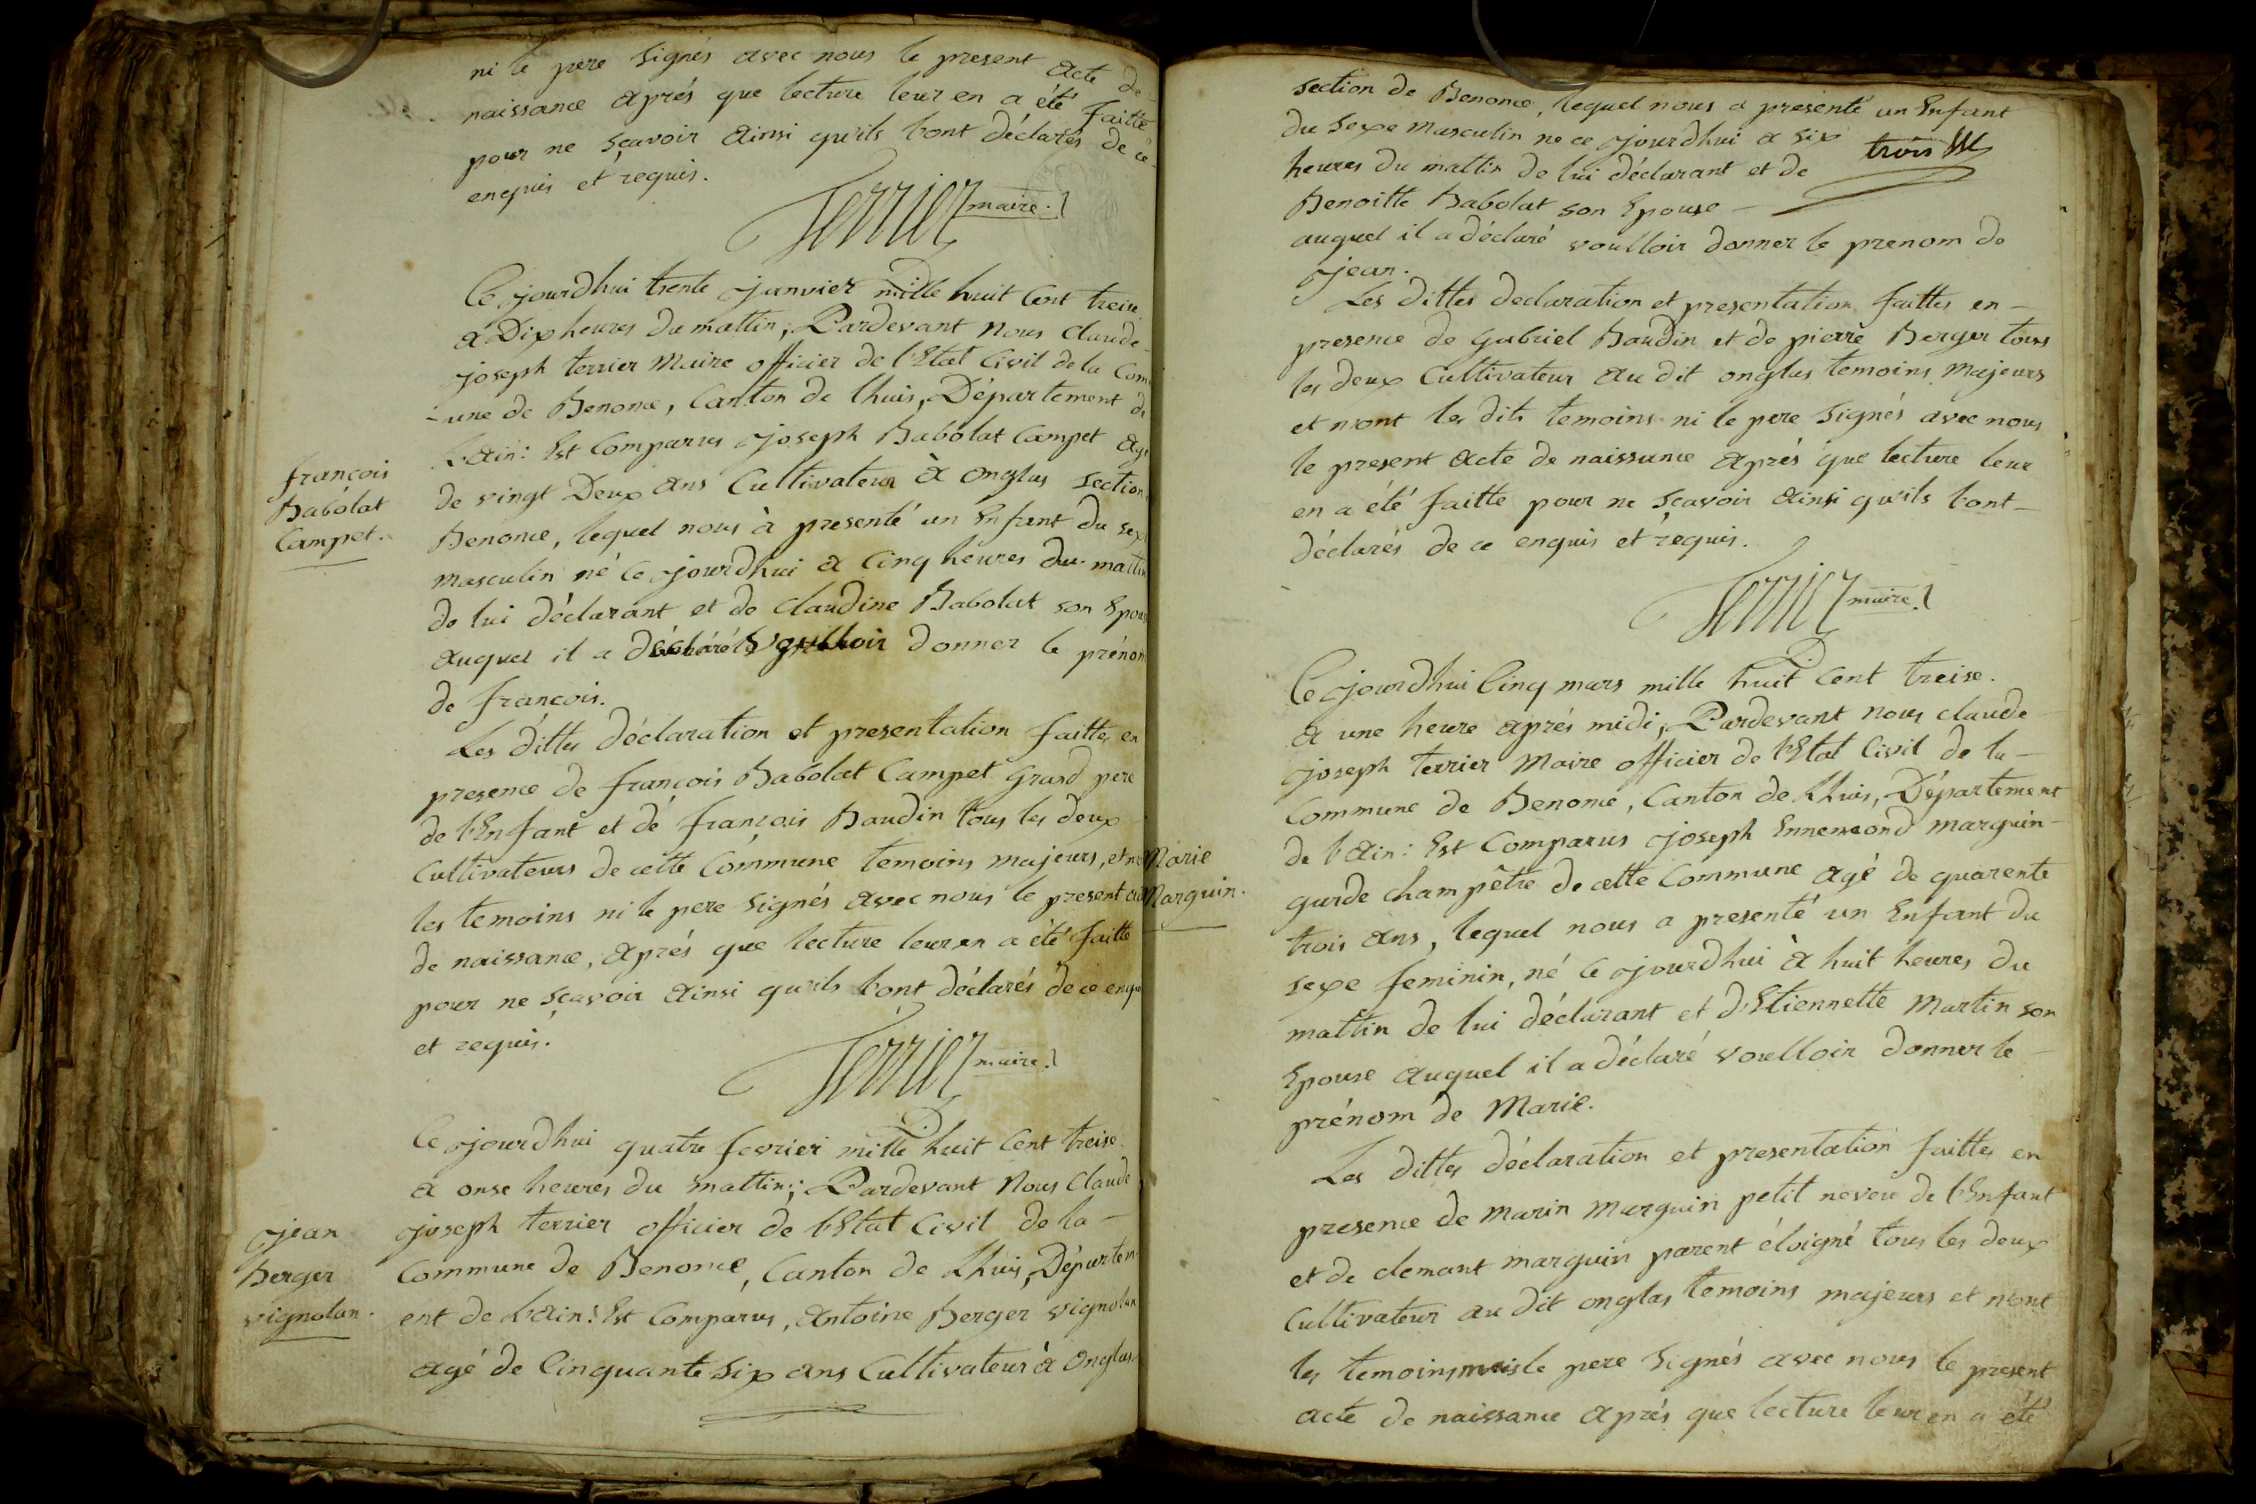 ni le pere Signés avec nous le present Acte de
naissance aprés que lecture leur en a été faitte
pour ne sçavoir Ainsi qu'ils l'ont déclarés de ce
enquis et requis.
Terrier maire.
Ce jourdhui trente janvier mille huit Cent treise,
a Dix heures du mattin, Pardevant Nous claude
joseph terrier Maire officier de l'Etat Civil de la Com
-une de Benonce, Canton de lhuis, Département de
l'Ain: Est Comparus joseph Babolat Campet agé
de vingt Deux ans Cultivateur à onglas section
Benonce, lequel nous à presenté un Enfant du sexe
masculin né ce jourdhui a Cinq heures du mattin
de lui déclarant et de claudine Babolat son Epouse
auquel il a déclaré voulloir donner le prénom
de françois.
Les dittes déclaration et presentation faittes en
presence de françois Babolat Campet grand pere
de l'Enfant et de françois Baudin tous les deux
Cultivateurs de cette Commune temoins majeurs, et
les temoins ni le pere Signés avec nous le present
de naissance, après que lecture leur en a été faitte
pour ne sçavoir Ainsi qu'ils l'ont déclarés de ce enqu
et requis.
Terrier maire.
françois
Babolat
Campet.
Ce jourdhui quatre fevrier mille huit Cent treise
a onse heures du mattin; Pardevant Nous Claude
joseph terrier officier de l'Etat Civil de la
Commune de Benonce, Canton de Lhuis, Départem
ent de l'Ain: Est Comparus, Antoine Berger vignolan
agé de Cinquante Six ans Cultivateur à Onglas
jean
Berger
vignolan.
section de Benonce, lequel nous a presenté un Enfant
du Sexe masculin ne ce jourdhui a six
heures du mattin de lui déclarant et de
Benoitte Babolat son Epouse
trois
auquel il a déclaré voulloir donner le prenom de
jean.
Les dittes declaration et presentation faittes en
presence de gabriel Baudin et de pierre Berger tous
les deux Cultivateur au dit onglas temoins majeurs
et n'ont les dits temoins ni le pere Signés avec nous
le present Acte de naissance Aprés que lecture leur
en a été faitte pour ne Sçavoir Ainsi qu'ils l'ont
déclarés de ce enquis et requis.
Terrier maire.
Ce jourdhui Cinq mars mille huit Cent treise.
a une heure aprés midi, Pardevant Nous claude
joseph terrier Maire officier de l'Etat Civil de la
Commune de Benonce, Canton de Lhuis, Département
de l'Ain: Est Comparus joseph Ennemond marguin
garde champêtre de cette Commune Agé de quarente
trois ans, lequel nous a presenté un Enfant du
sexe feminin, né ce jourdhui à huit heures du
mattin de lui déclarant et d'Etiennette Martin son
Epouse auquel il a déclaré voulloir donner le
prénom de Marie.
Les dittes déclaration et presentation faittes en
presence de marin marguin petit neveu de l'Enfant
et de clemant marguin parent éloigné tous les deux
Cultivateur au dit onglas temoins majeurs et n'ont
les temoins le pere Signés avec nous le present
acte de naissance aprés que lecture leur en a été
Marie
Marguin.